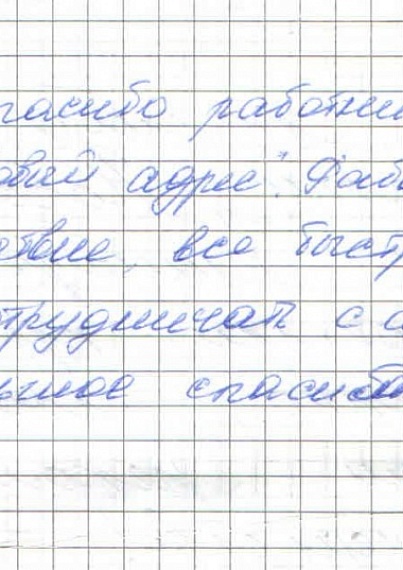 пасибо работни
овый адрес". Раб
ствие, все быстр
трудничать с а
ьное спасибо